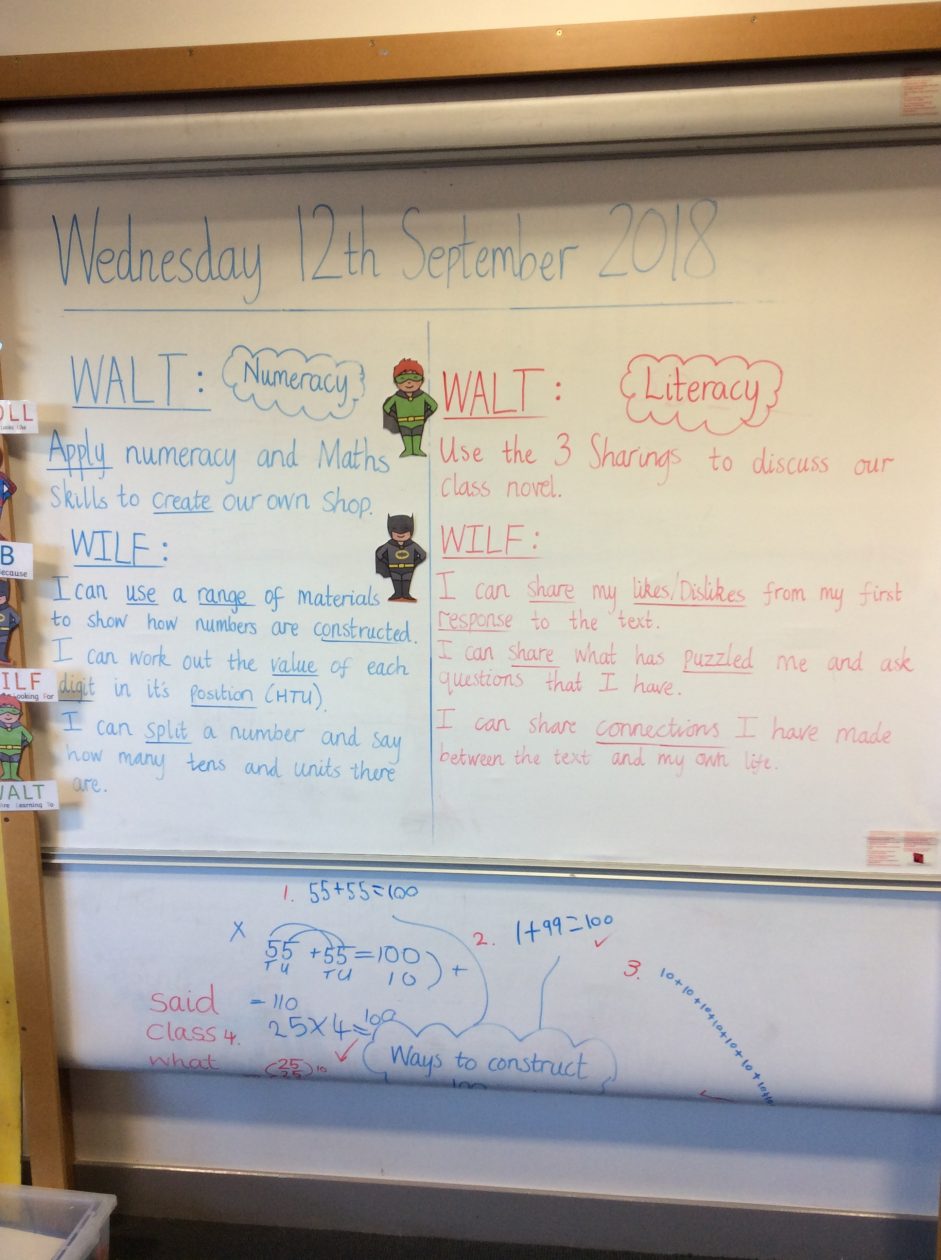 Wednesday 12th September 2018
WALT: Numeracy
Apply numeracy and Maths
Skills to create our own shop.
WILF:
I can use a range of materials
to show how numbers are constructed.
I can work out the value of each
digit in it's position (HTU).
I can split a number and say
how many tens and units there
are.
WALT: Literacy
Use the 3 Sharings to discuss our
class novel.
WILF:
I can share my likes/Dislikes from my first
response to the text.
I can share what has puzzled me and ask
questions that I have.
I can share connections I have made
between the text and my own life.
OLL
B
ecause
ILF
ooking For
WALT
Are Learning To
1. 55+55=100
X
55 +55=100
TU TU 10
=110
2. 1+99=100
3. 10+10+10+10+10+10+10+10
said
Class 4. 25X4=100
what
25
25
10
Ways to construct
100